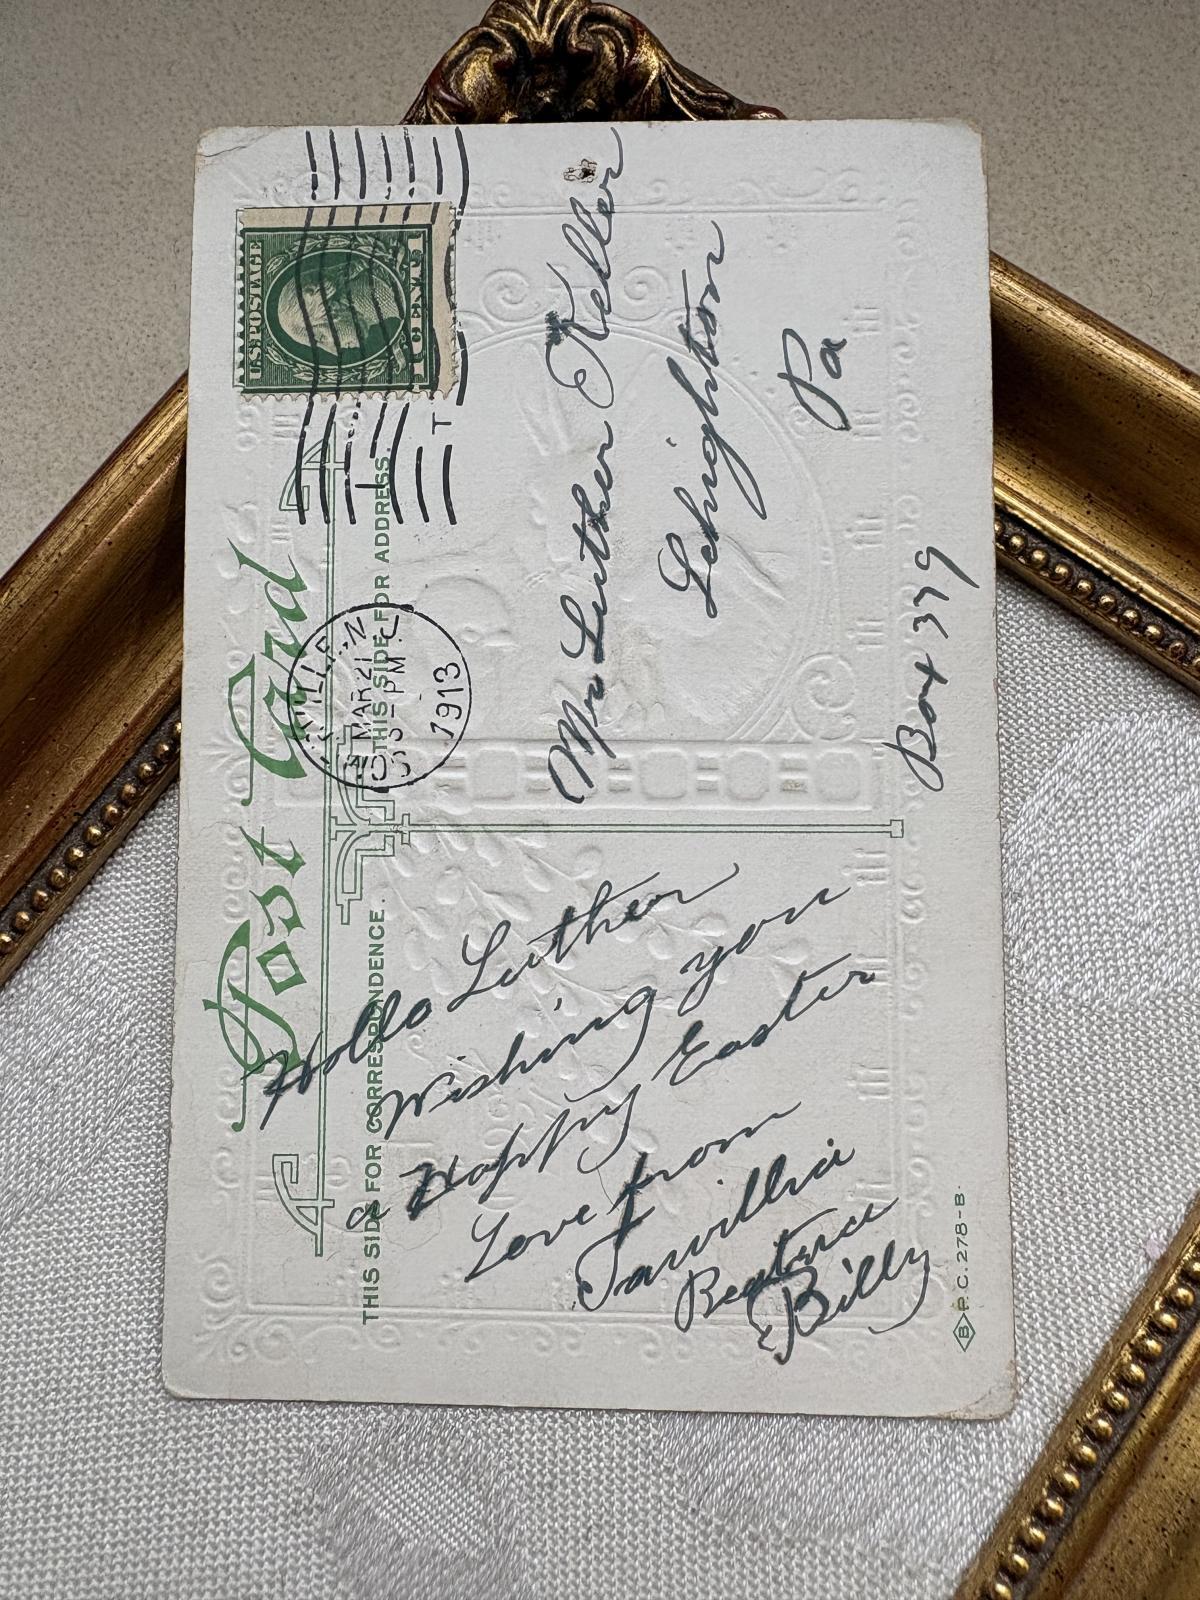 Post Card
THIS SIDE FOR CORRESPONDENCE.
THIS SIDE FOR ADDRESS.
U.S. POSTAGE
1 CENT 1
MAR 21
PM
1913
T
Hello Luther
Wishing you
a Happy Easter
Love from
Beatrice
& Billy
Mr Luther Keller
Lehighton
Pa
Box 379
B P.C. 278-B.